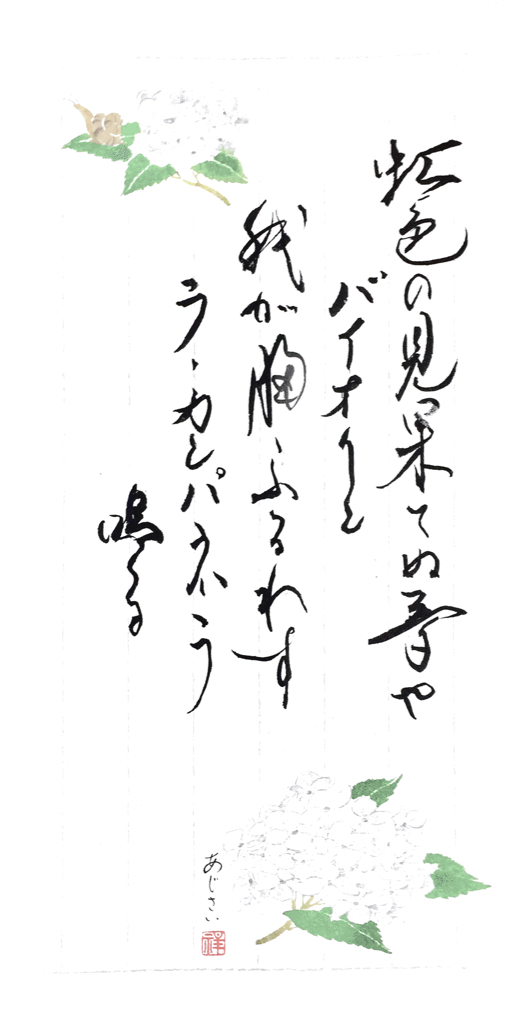 虹色の見果てぬ夢や
バイオリン
我が胸ふるわす
ラ・カンパネラ
鳴る
あじさい
祥